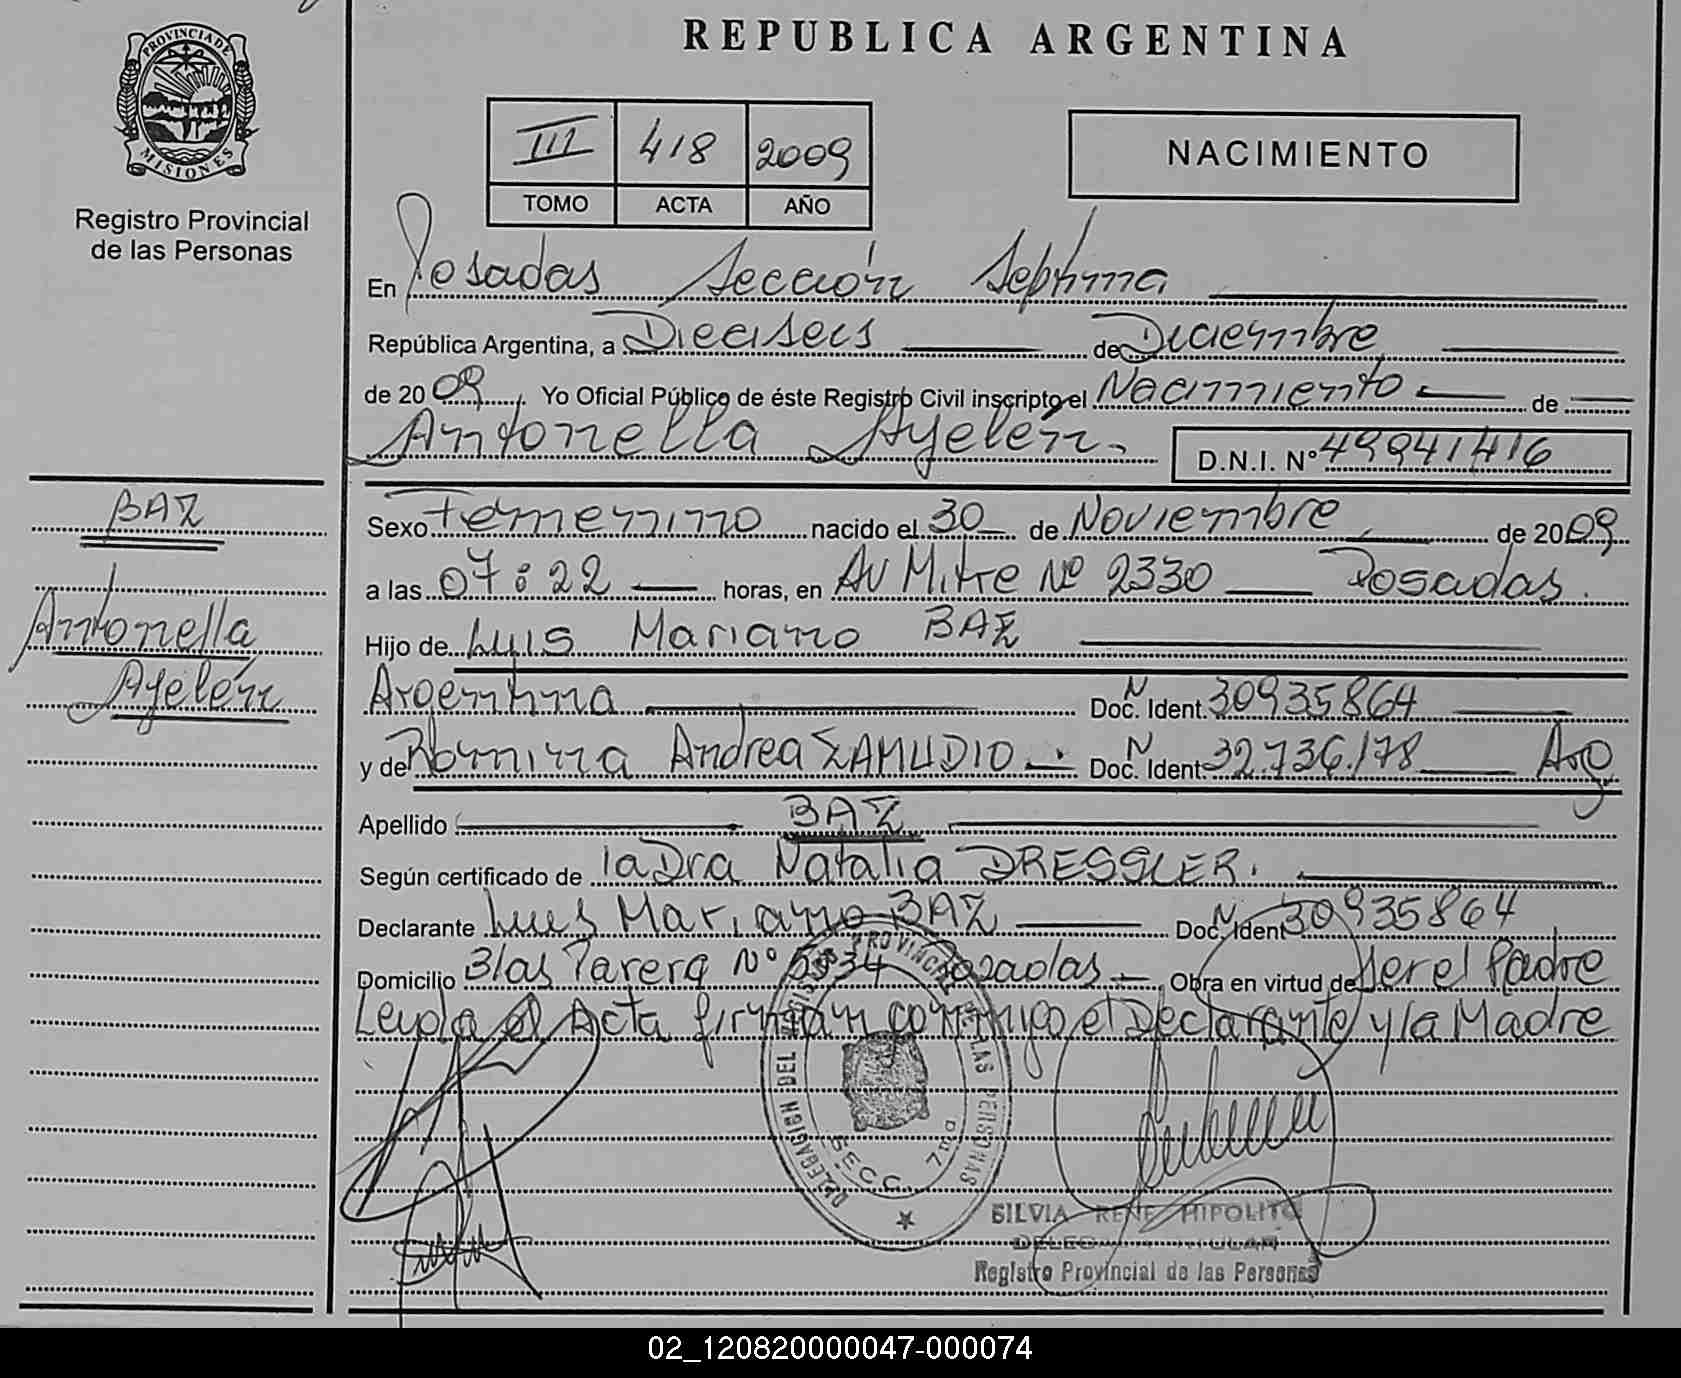 REPUBLICA ARGENTINA
PROVINCIA DE MISIONES
Registro Provincial
de las Personas
III 418 2009
TOMO ACTA AÑO
NACIMIENTO
En Posadas Sección Septima
República Argentina, a Dieciseis de Diciembre
de 2009 Yo Oficial Público de éste Registro Civil inscripto el Nacimiento de
Antonella Ayelén
D.N.I. Nº 49941416
BAZ
Antonella
Ayelén
Sexo Femenino nacido el 30 de Noviembre de 2009
a las 07:22 horas, en Av Mitre Nº 2330 Posadas.
Hijo de Luis Mariano BAZ
Argentina Doc. Ident. N 30935864
y de Romina Andrea ZAMUDIO Doc. Ident. N 32.736.178 Arg
Apellido BAZ
Según certificado de la Dra Natalia DRESSLER.
Declarante Luis Mariano BAZ Doc. Ident N 30935864
Domicilio Blas Parera Nº Posadas Obra en virtud de ser el Padre
Leyda el Acta firman conmigo el Declarante y la Madre
DELEGACION DEL REGISTRO PROVINCIAL DE LAS PERSONAS
SECC. 7ma
SILVIA RENE HIPOLITO
Registro Provincial de las Personas
02_120820000047-000074